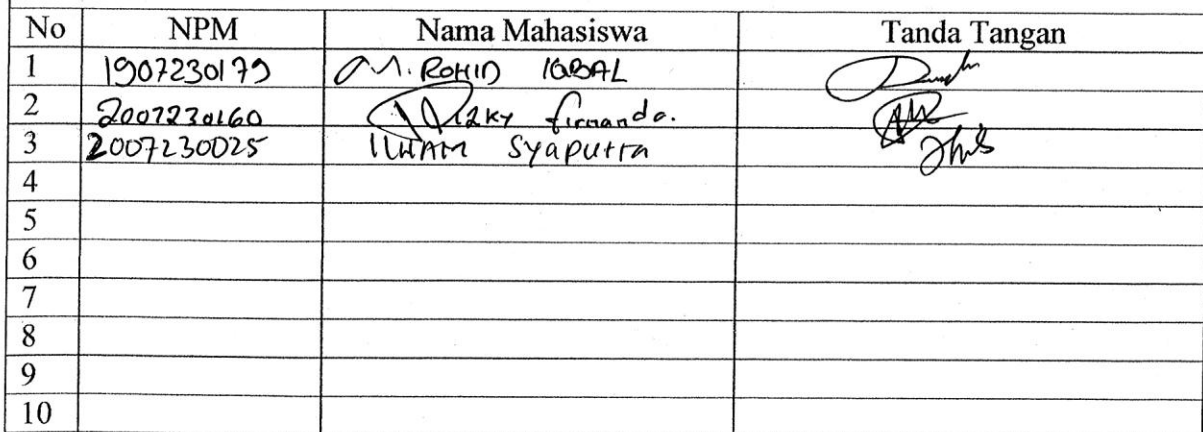 No NPM Nama Mahasiswa Tanda Tangan
1 1907230179 M. ROHID IQBAL
2 2007230160 Rizky firmanda.
3 2007230025 ILHAM Syaputra
4
5
6
7
8
9
10